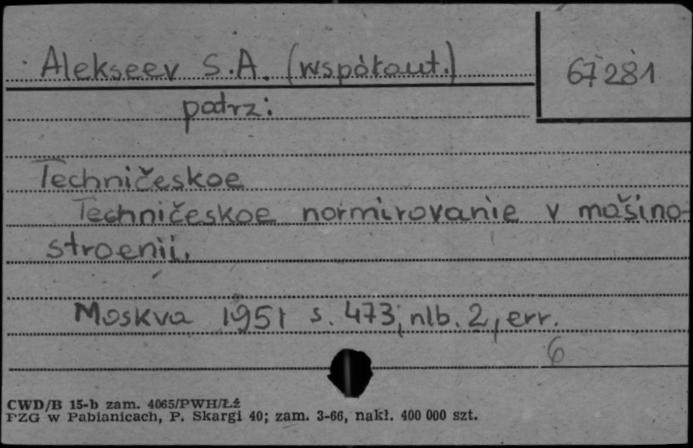 Alekseev S.A. (współaut.)
67281
patrz:
Techničeskoe
Techničeskoe normirovanie v mašino-
stroenii.
Moskva 1951 s. 473, nlb. 2, err.
6
CWD/B 15-b zam. 4065/PWH/Łź
PZG w Pabianicach, P. Skargi 40; zam. 3-66, nakł. 400 000 szt.